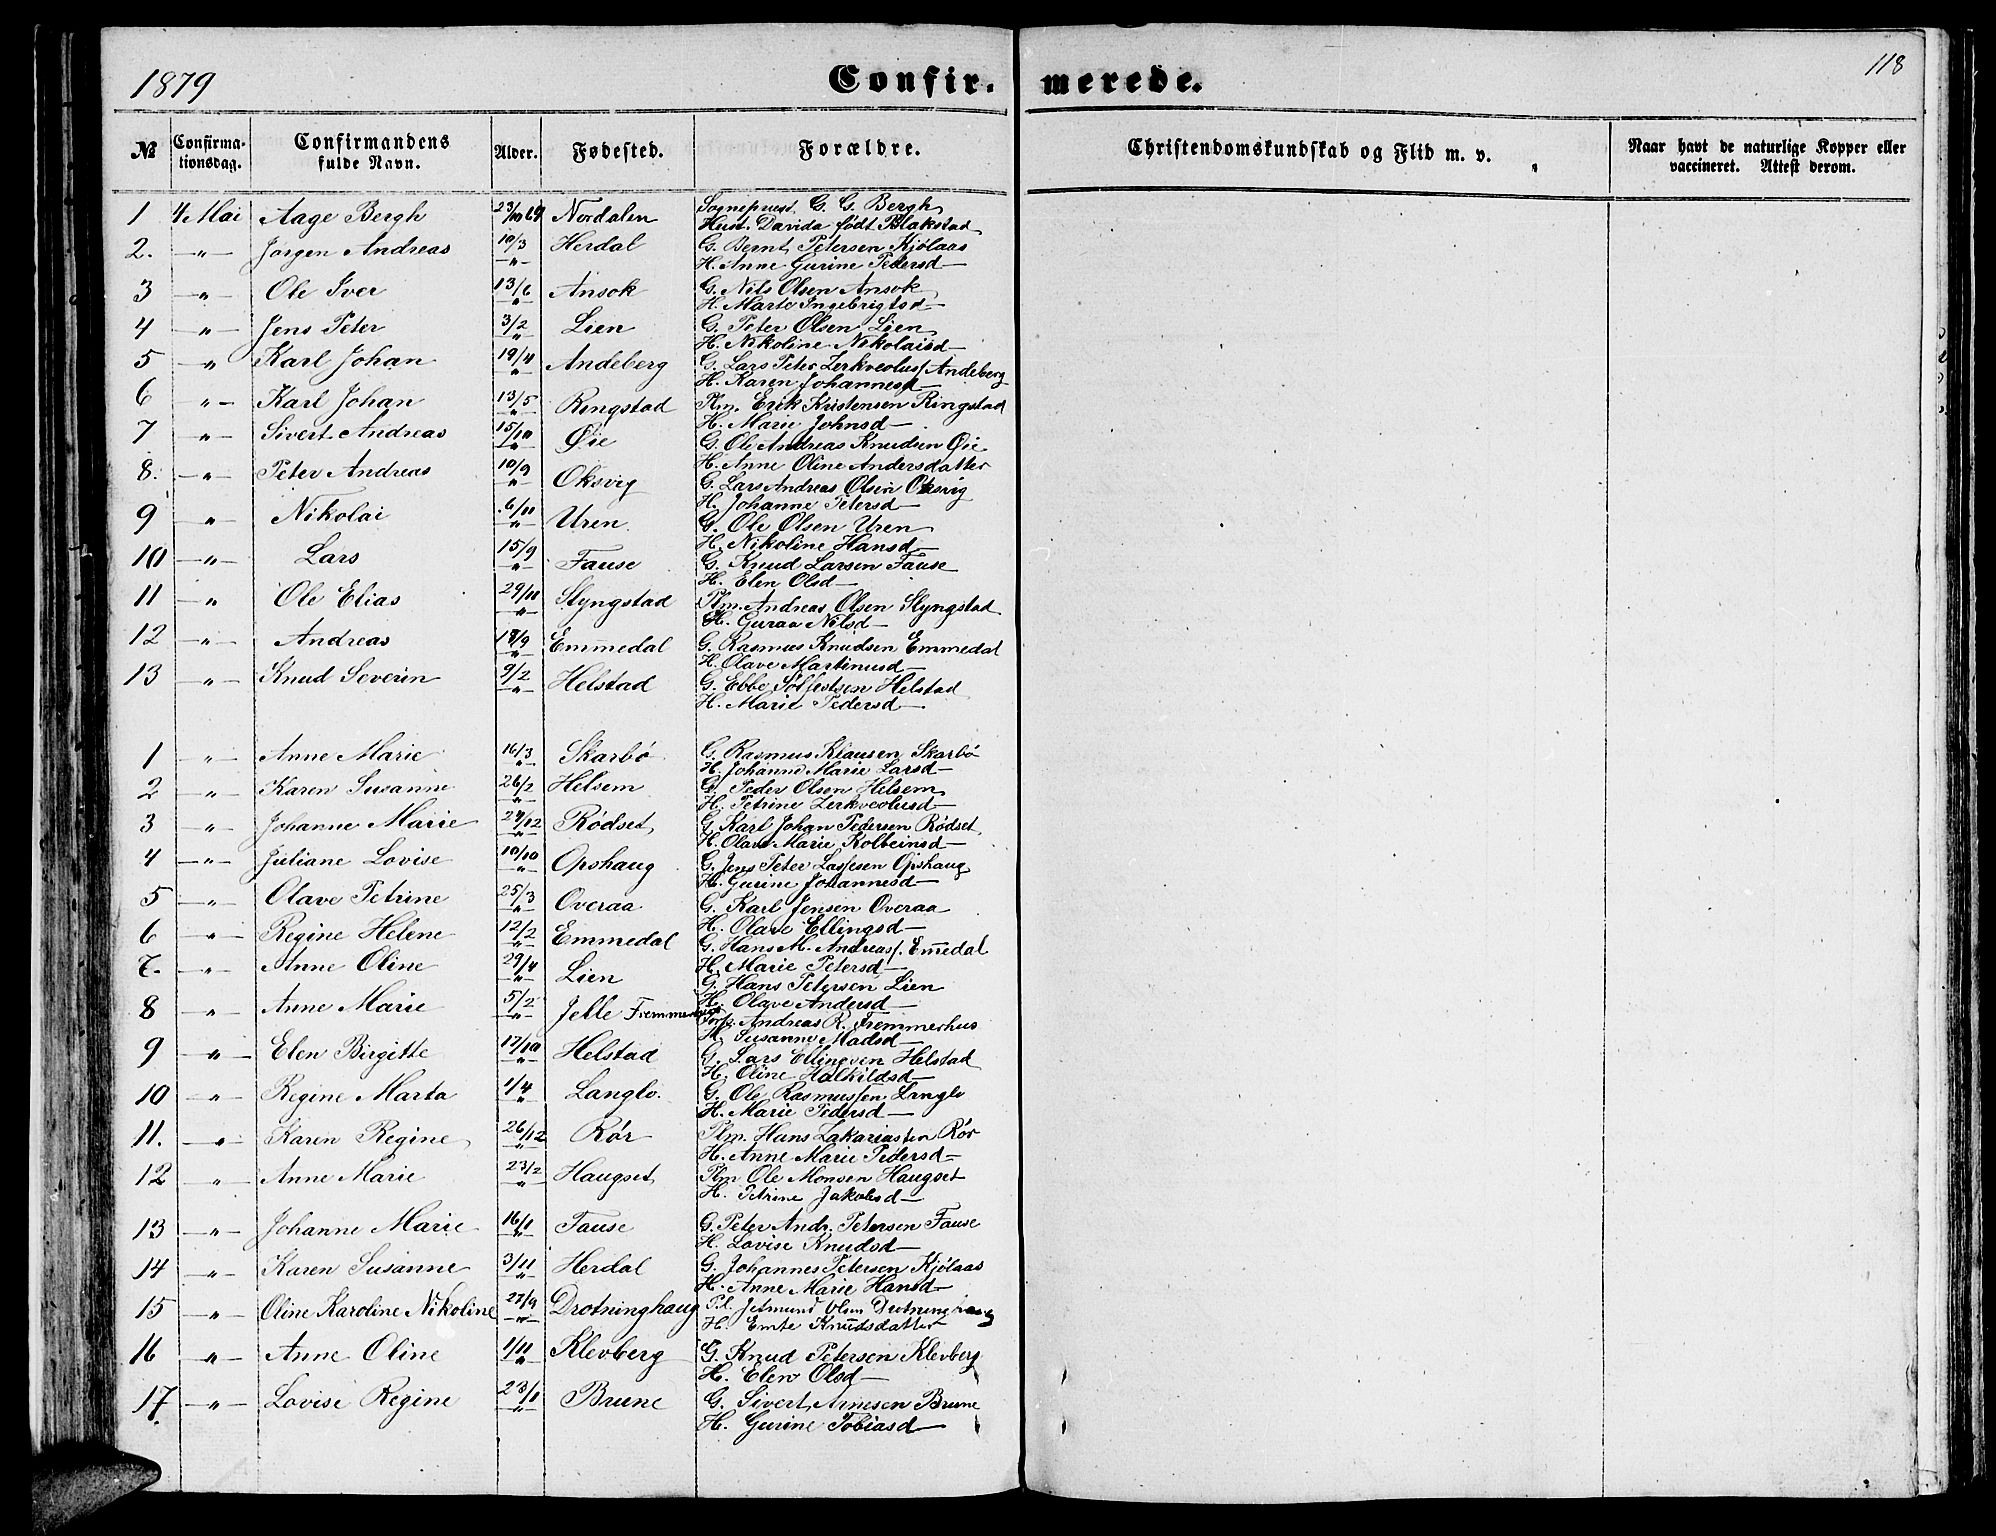 1879 Confir- merede. 118
№ Confirma-tionsdag. Confirmandens fulde Navn. Alder. Fødested. Forældre. Christendomskundskab og Flid m. v. Naar havt de naturlige Kopper eller vaccineret. Attest derom.
1 4 Mai Aage Bergh 23/10 64 Nordalen Sognepræst G. G. Bergh
Hust. Davida født Blakstad
2. —"— Jørgen Andreas 10/3 " Herdal G. Bernt Petersen Kjølaas
H. Anne Gurine Pedersd—
3 —"— Ole Iver 13/6 " Ansok G. Nils Olsen Ansok
H. Marte Ingebrigtsd—
4 —"— Jens Peter 3/2 " Lien G. Peter Olsen Lien
H. Nikoline Nikolaisd—
5 —"— Karl Johan 19/4 " Andeberg G. Lars Peter Zerkveolus/ Andeberg
H. Karen Johannesd—
6 —"— Karl Johan 13/5 " Ringstad Plm. Erik Kristensen Ringstad
H. Marie Johnsd—
7 —"— Sivert Andreas 15/10 " Øie G. Ole Andreas Knudsen Øie
H. Anne Oline Andersdatter
8. —"— Peter Andreas 10/9 " Oksvig G. Lars Andreas Olsen Oksvig
H. Johanne Petersd—
9 —"— Nikolai 6/11 " Uren G. Ole Olsen Uren
H. Nikoline Hansd—
10 —"— Lars 15/9 " Fause G. Knud Larsen Fause
H. Elen Olsd—
11 —"— Ole Elias 29/11 " Slyngstad Plm. Andreas Olsen Slyngstad
H. Guraa Nilsd—
12 —"— Andreas 18/9 " Emmedal G. Rasmus Knudsen Emmedal
H. Olave Martinusd—
13 —"— Knud Severin 9/2 " Helstad G. Ebbe Solfestsen Helstad
H. Marie Pedersd—
1 —"— Anne Marie 16/3 " Skarbø G. Rasmus Klausen Skarbø
H. Johanne Marie Larsd—
2 —"— Karen Susanne 26/2 " Helsem G. Peder Olsen Helsem
H. Petrine Zerkveolusd—
3 —"— Johanne Marie 24/12 " Rødset G. Karl Johan Pedersen Rødset
H. Olave Marie Kolbeinsd—
4 —"— Juliane Lovise 10/10 " Opshaug G. Jens Peter Lassesen Opshaug
H. Gurine Johannesd—
5 —"— Olave Petrine 25/3 " Overaa G. Karl Jensen Overaa
H. Olave Ellingsd—
6 —"— Regine Helene 12/2 " Emmedal G. Hans M. Andreas/. Em̄edal
H. Marie Petersd—
7. —"— Anne Oline 29/4 " Lien G. Hans Petersen Lien
H. Olave Andersd—
8 —"— Anne Marie 5/2 " Jelle Fremmerhus Forp. Andreas R. Fremmerhus
H. Susanne Madsd—
9 —"— Elen Birgitte 17/10 " Helstad G. Lars Ellingsen Helstad
H. Oline Halkildsd—
10 —"— Regine Marta 1/4 " Langlo. G. Ole Rasmussen Langlo
H. Marie Pedersd—
11. —"— Karen Regine 26/12 " Rør Plm. Hans Zakariassen Rør
H. Anne Marie Pedersd—
12 —"— Anne Marie 23/2 " Haugset Plm Ole Monsen Haugset
H. Petrine Jakobsd—
13 —"— Johanne Marie 16/1 " Fause G. Peter Andr. Petersen Fause
H. Lovise Knudsd—
14 —"— Karen Susanne 3/11 " Herdal G. Johannes Petersen Kjølaas
H. Anne Marie Hansd—
15 —"— Oline Karoline Nikoline 27/9 " Drotninghaug Pl. Jetmund Olsen Drotninghaug
H. Emte Knudsdatter
16 —"— Anne Oline 1/11 " Klevberg G. Knud Petersen Klevberg
H. Elen Olsd—
17. —"— Lovise Regine 23/11 " Brune G. Sivert Arnesen Brune
H. Gurine Tobiasd—